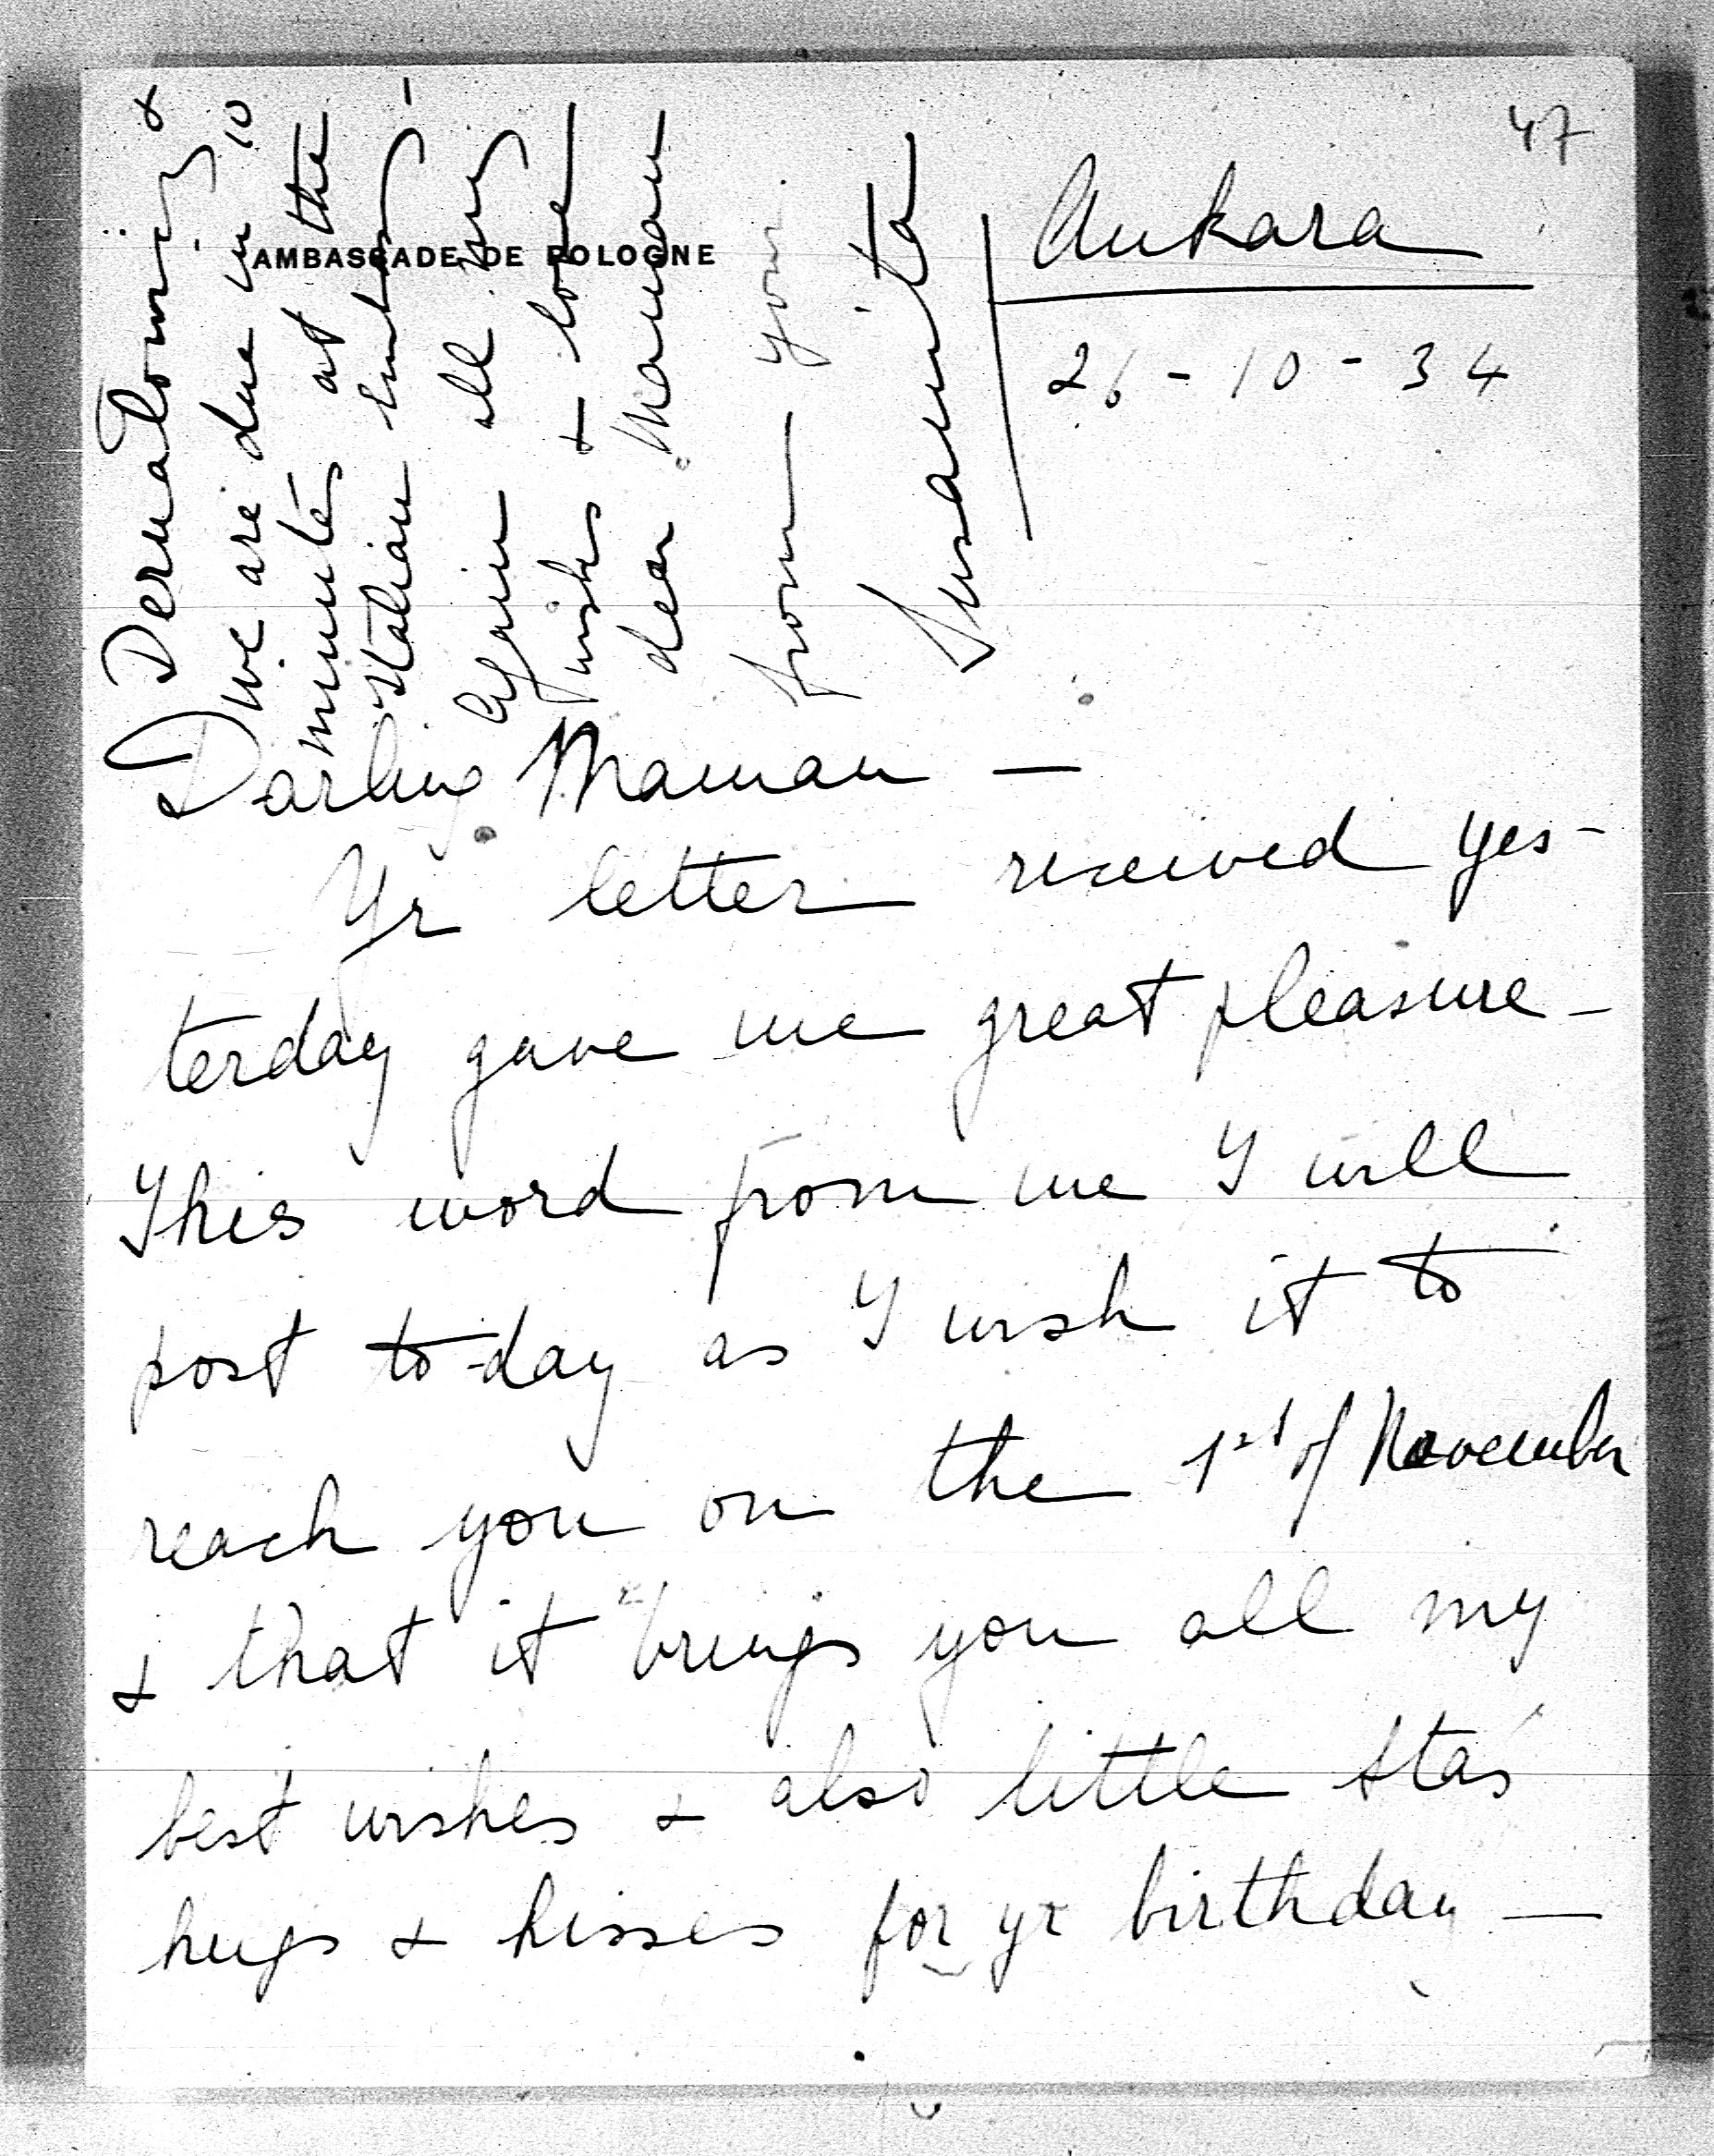 47
AMBASSADE DE POLOGNE
Ankara
26-10-34
Darling Maman —
Yr letter received yes-
terday gave me great pleasure -
This word from me I will
post to-day as I wish it to
reach you on the 1st of November
& that it brings you all my
best wishes & also little Stas'
hugs & kisses for yr birthday —
&
we are due in 10
minutes at the
Italian Embassy -
Again all my
wishes & love
dear Maman
from your
Susanita